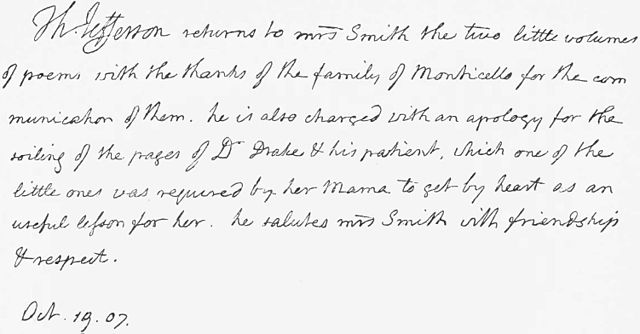 Th. Jefferson returns to mrs Smith the two little volumes
of poems with the thanks of the family of Monticello for the com
munication of them. he is also charged with an apology for the
soiling of the pages of Dr Drake & his patient, which one of the
little ones was required by her Mama to get by heart as an
useful lesson for her. he salutes mrs Smith with friendship
& respect.
Oct. 19. 07.